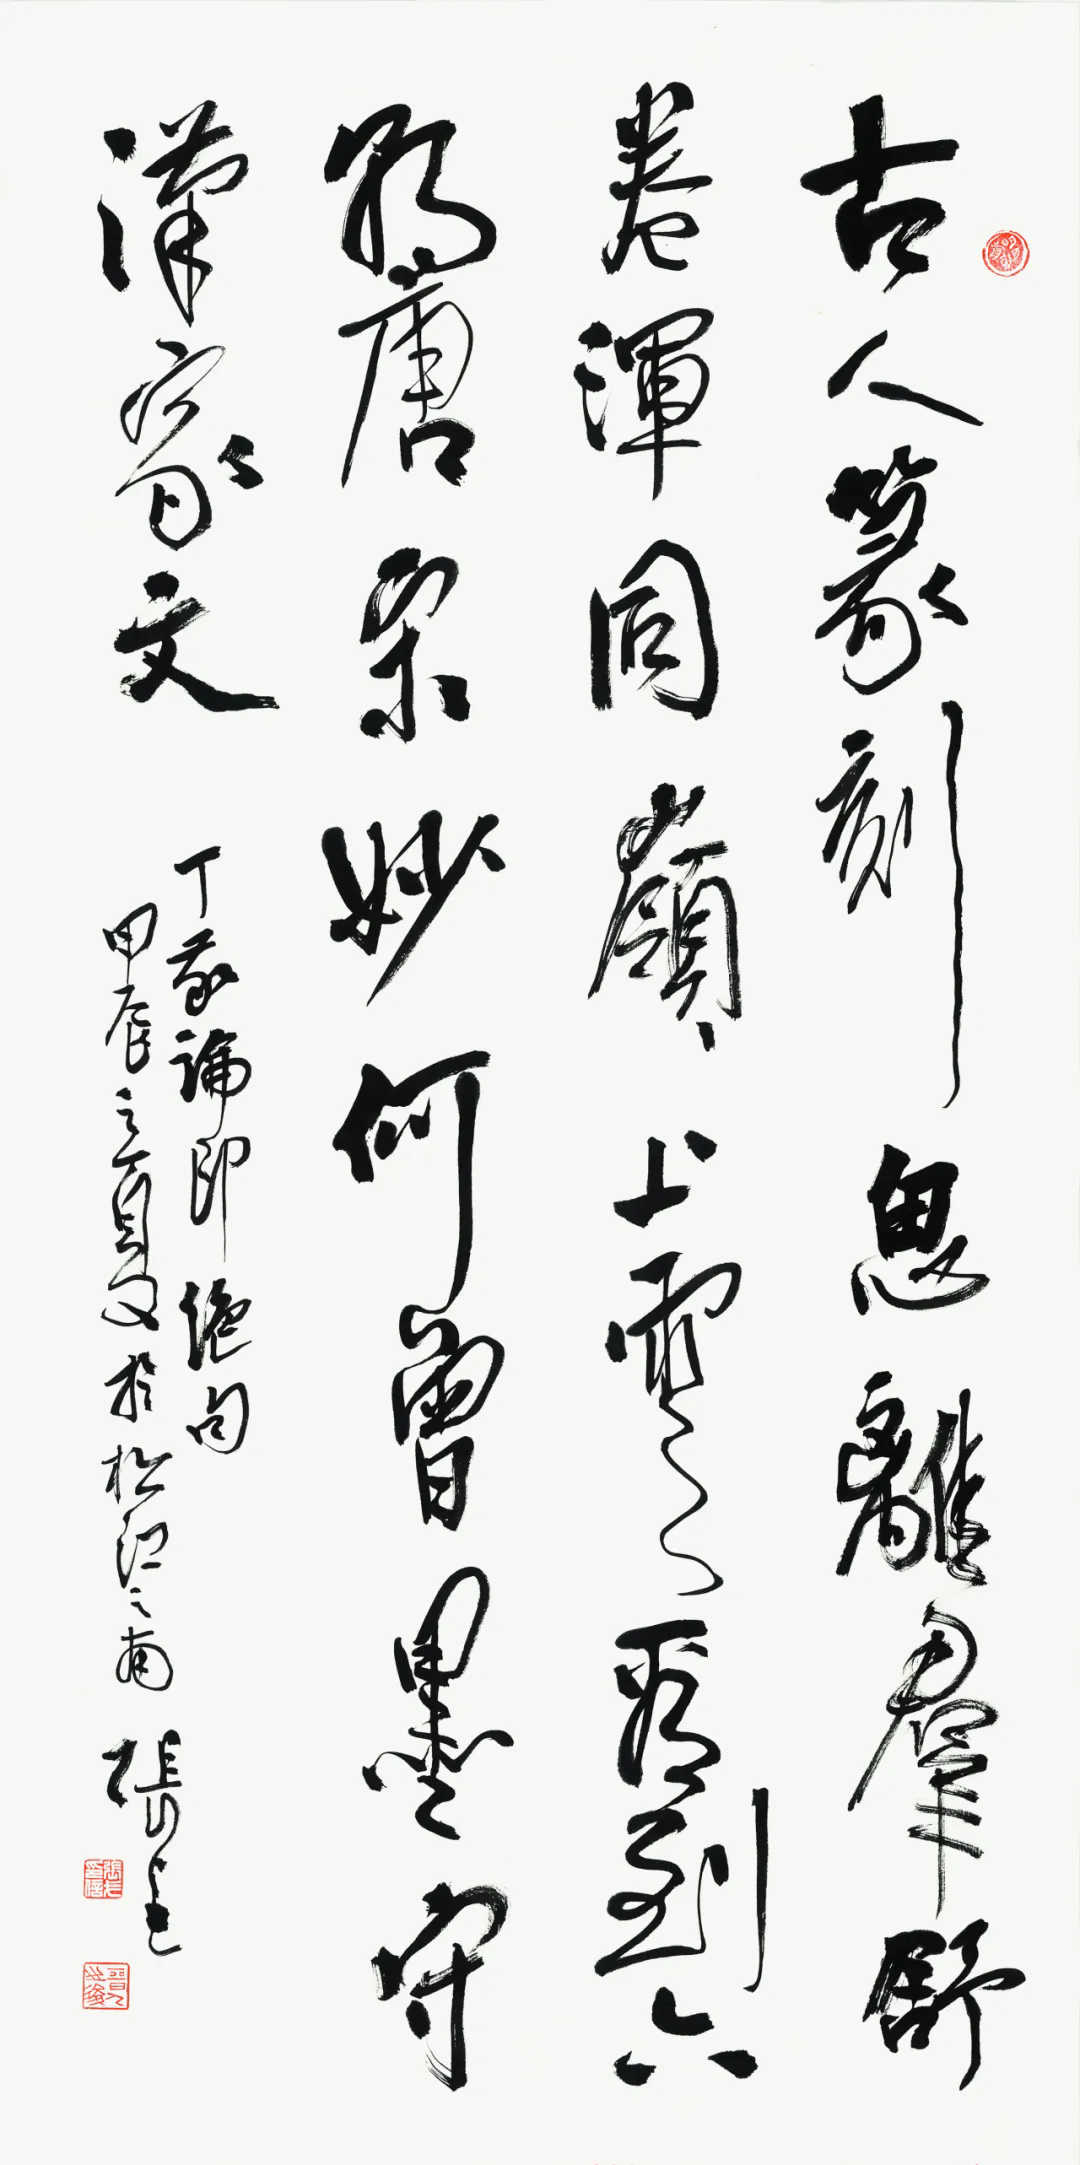 古人篆刻思離羣舒
卷渾同嶺上雲看到六
朝唐宋妙何曾墨守
漢家文
丁敬論印絕句
甲辰之夏於松江之南張